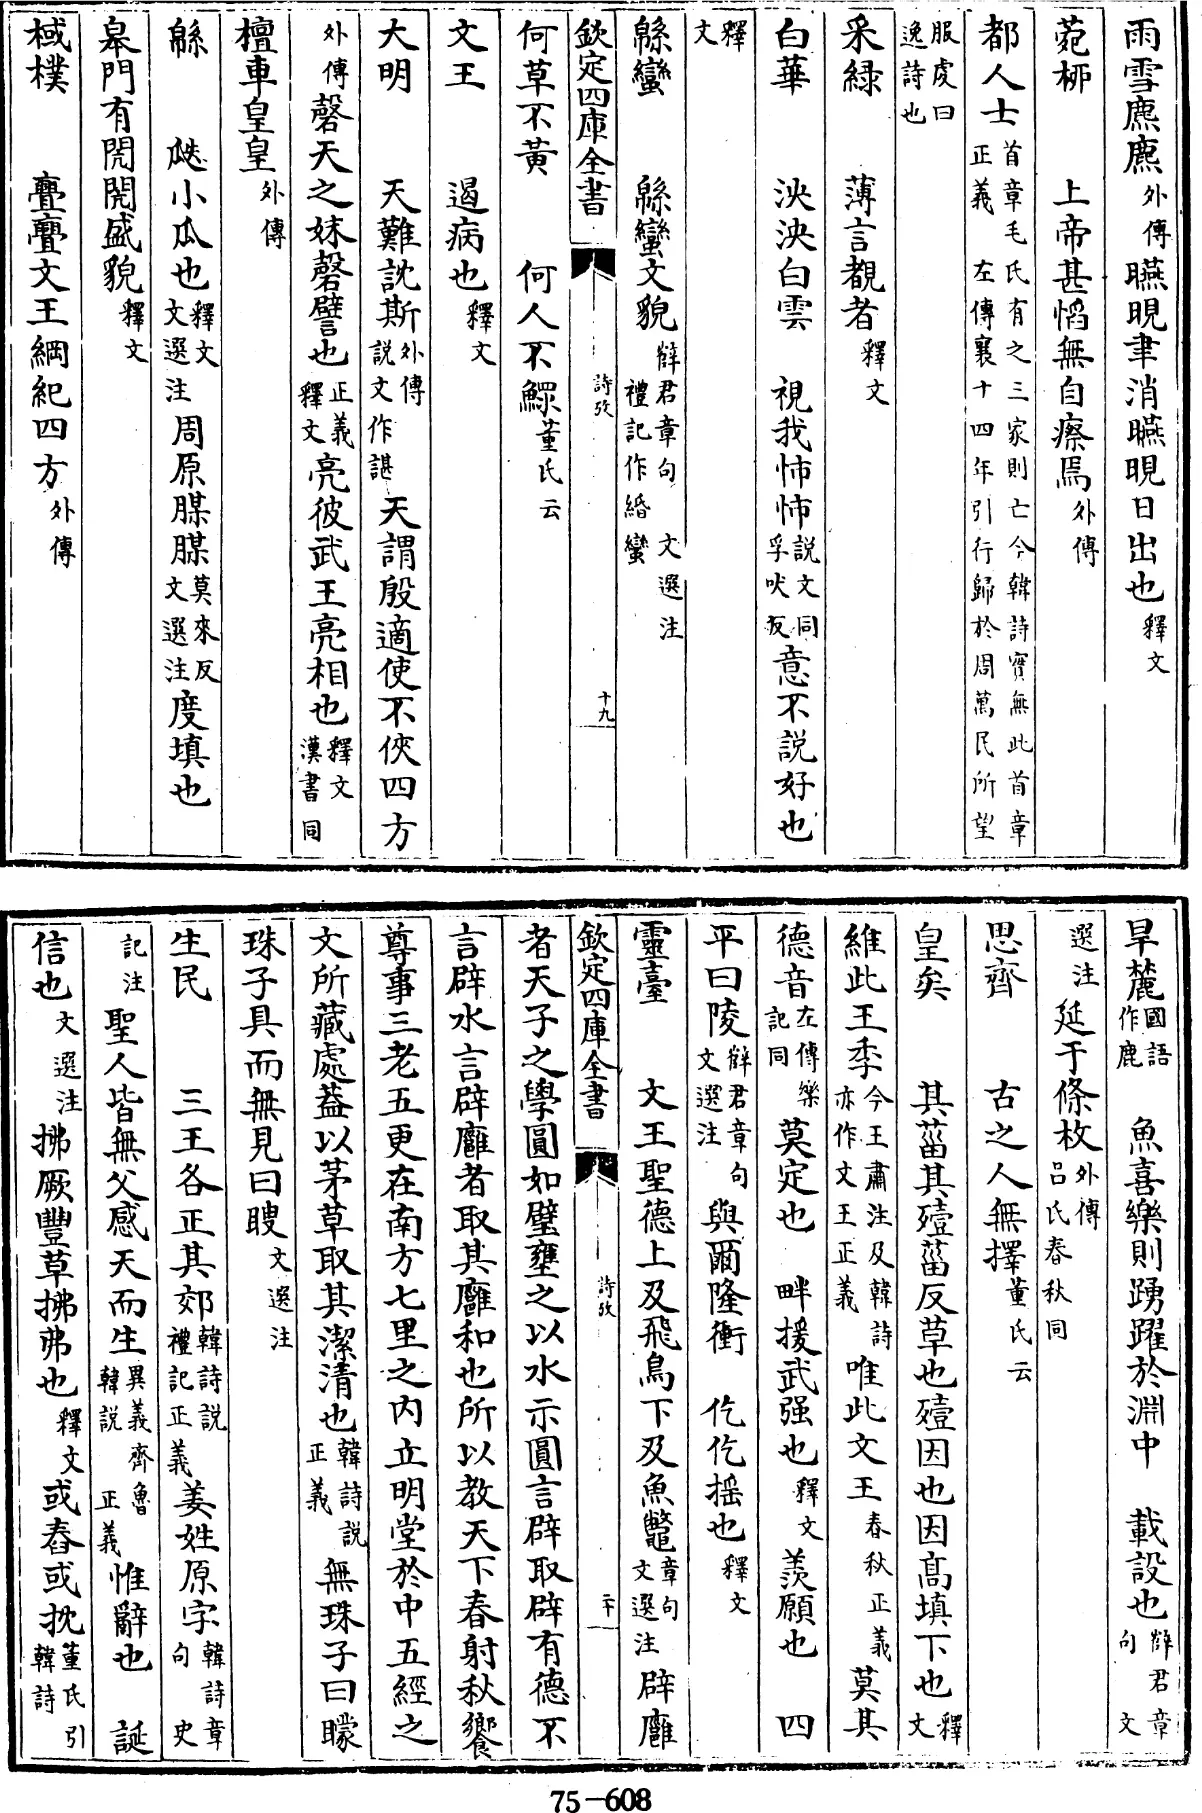 雨雪麃麃外傳曣晛聿消曣晛日出也釋文
菀栁 上帝甚慆無自瘵焉外傳
都人士首章毛氏有之三家則亡今韓詩實無此首章正義 左傳襄十四年引行歸於周萬民所望
服䖍曰逸詩也
采緑 薄言覩者釋文
白華 泱泱白雲 視我怖怖說文同孚吠反意不說好也
釋文
緜蠻 緜蠻文貌薛君章句 文選注禮記作緡蠻
欽定四庫全書 詩攷 十九
何草不黄 何人不鰥董氏云
文王 遏病也釋文
大明 天難訦斯外傳說文作諶 天謂殷適使不俠四方
外傳磬天之妹磬譬也正義釋文亮彼武王亮相也釋文漢書同
檀車皇皇外傳
緜 瓞小瓜也釋文文選注周原腜腜莫來反文選注度填也
臯門有閌閌盛貌釋文
棫樸 亹亹文王綱紀四方外傳
旱麓國語作鹿 魚喜樂則踴躍於淵中 載設也薛君章句 文
選注延于條枚外傳吕氏春秋同
思齊 古之人無擇董氏云
皇矣 其菑其殪菑反草也殪因也因髙填下也釋文
維此王季今王肅注及韓詩亦作文王正義 唯此文王春秋正義莫其
德音左傳樂記同莫定也 畔援武强也釋文羨願也 四
平曰陵薛君章句文選注與爾隆衝 仡仡揺也釋文
靈臺 文王聖德上及飛鳥下及魚鼈章句文選注辟廱
欽定四庫全書 詩攷 二十
者天子之學圓如璧壅之以水示圓言辟取辟有德不
言辟水言辟廱者取其廱和也所以教天下春射秋饗
尊事三老五更在南方七里之内立明堂於中五經之
文所藏處葢以茅草取其潔清也韓詩說正義無珠子曰矇
珠子具而無見曰瞍文選注
生民 三王各正其郊韓詩說禮記正義姜姓原字韓詩章句 史
記注聖人皆無父感天而生異義齊魯韓說 正義惟辭也 誕
信也文選注拂厥豐草拂弗也釋文或舂或抗董氏引韓詩
75—608